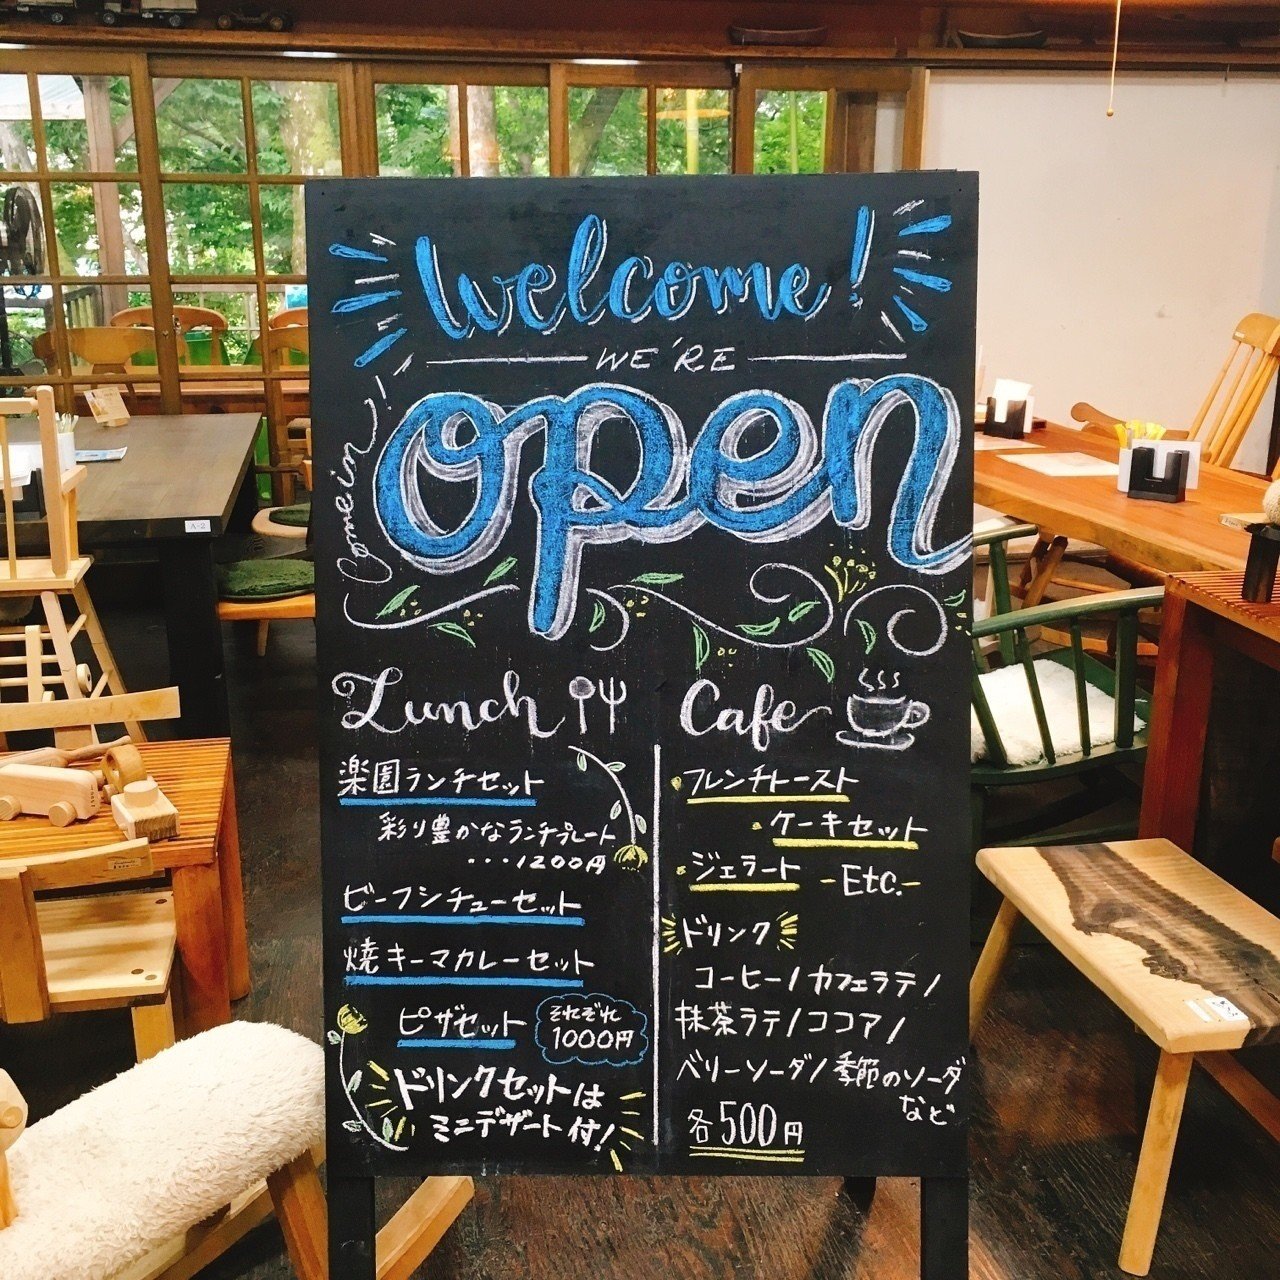 Welcome!
WE'RE
open
Come in!
Lunch
楽園ランチセット
彩り豊かなランチプレート
・・・1200円
ビーフシチューセット
焼キーマカレーセット
ピザセット
それぞれ
1000円
ドリンクセットは
ミニデザート付!
Cafe
・フレンチトースト
・ケーキセット
・ジェラート -Etc.-
ドリンク
コーヒー/カフェラテ/
抹茶ラテ/ココア/
ベリーソーダ/季節のソーダ
など
各500円
A-2